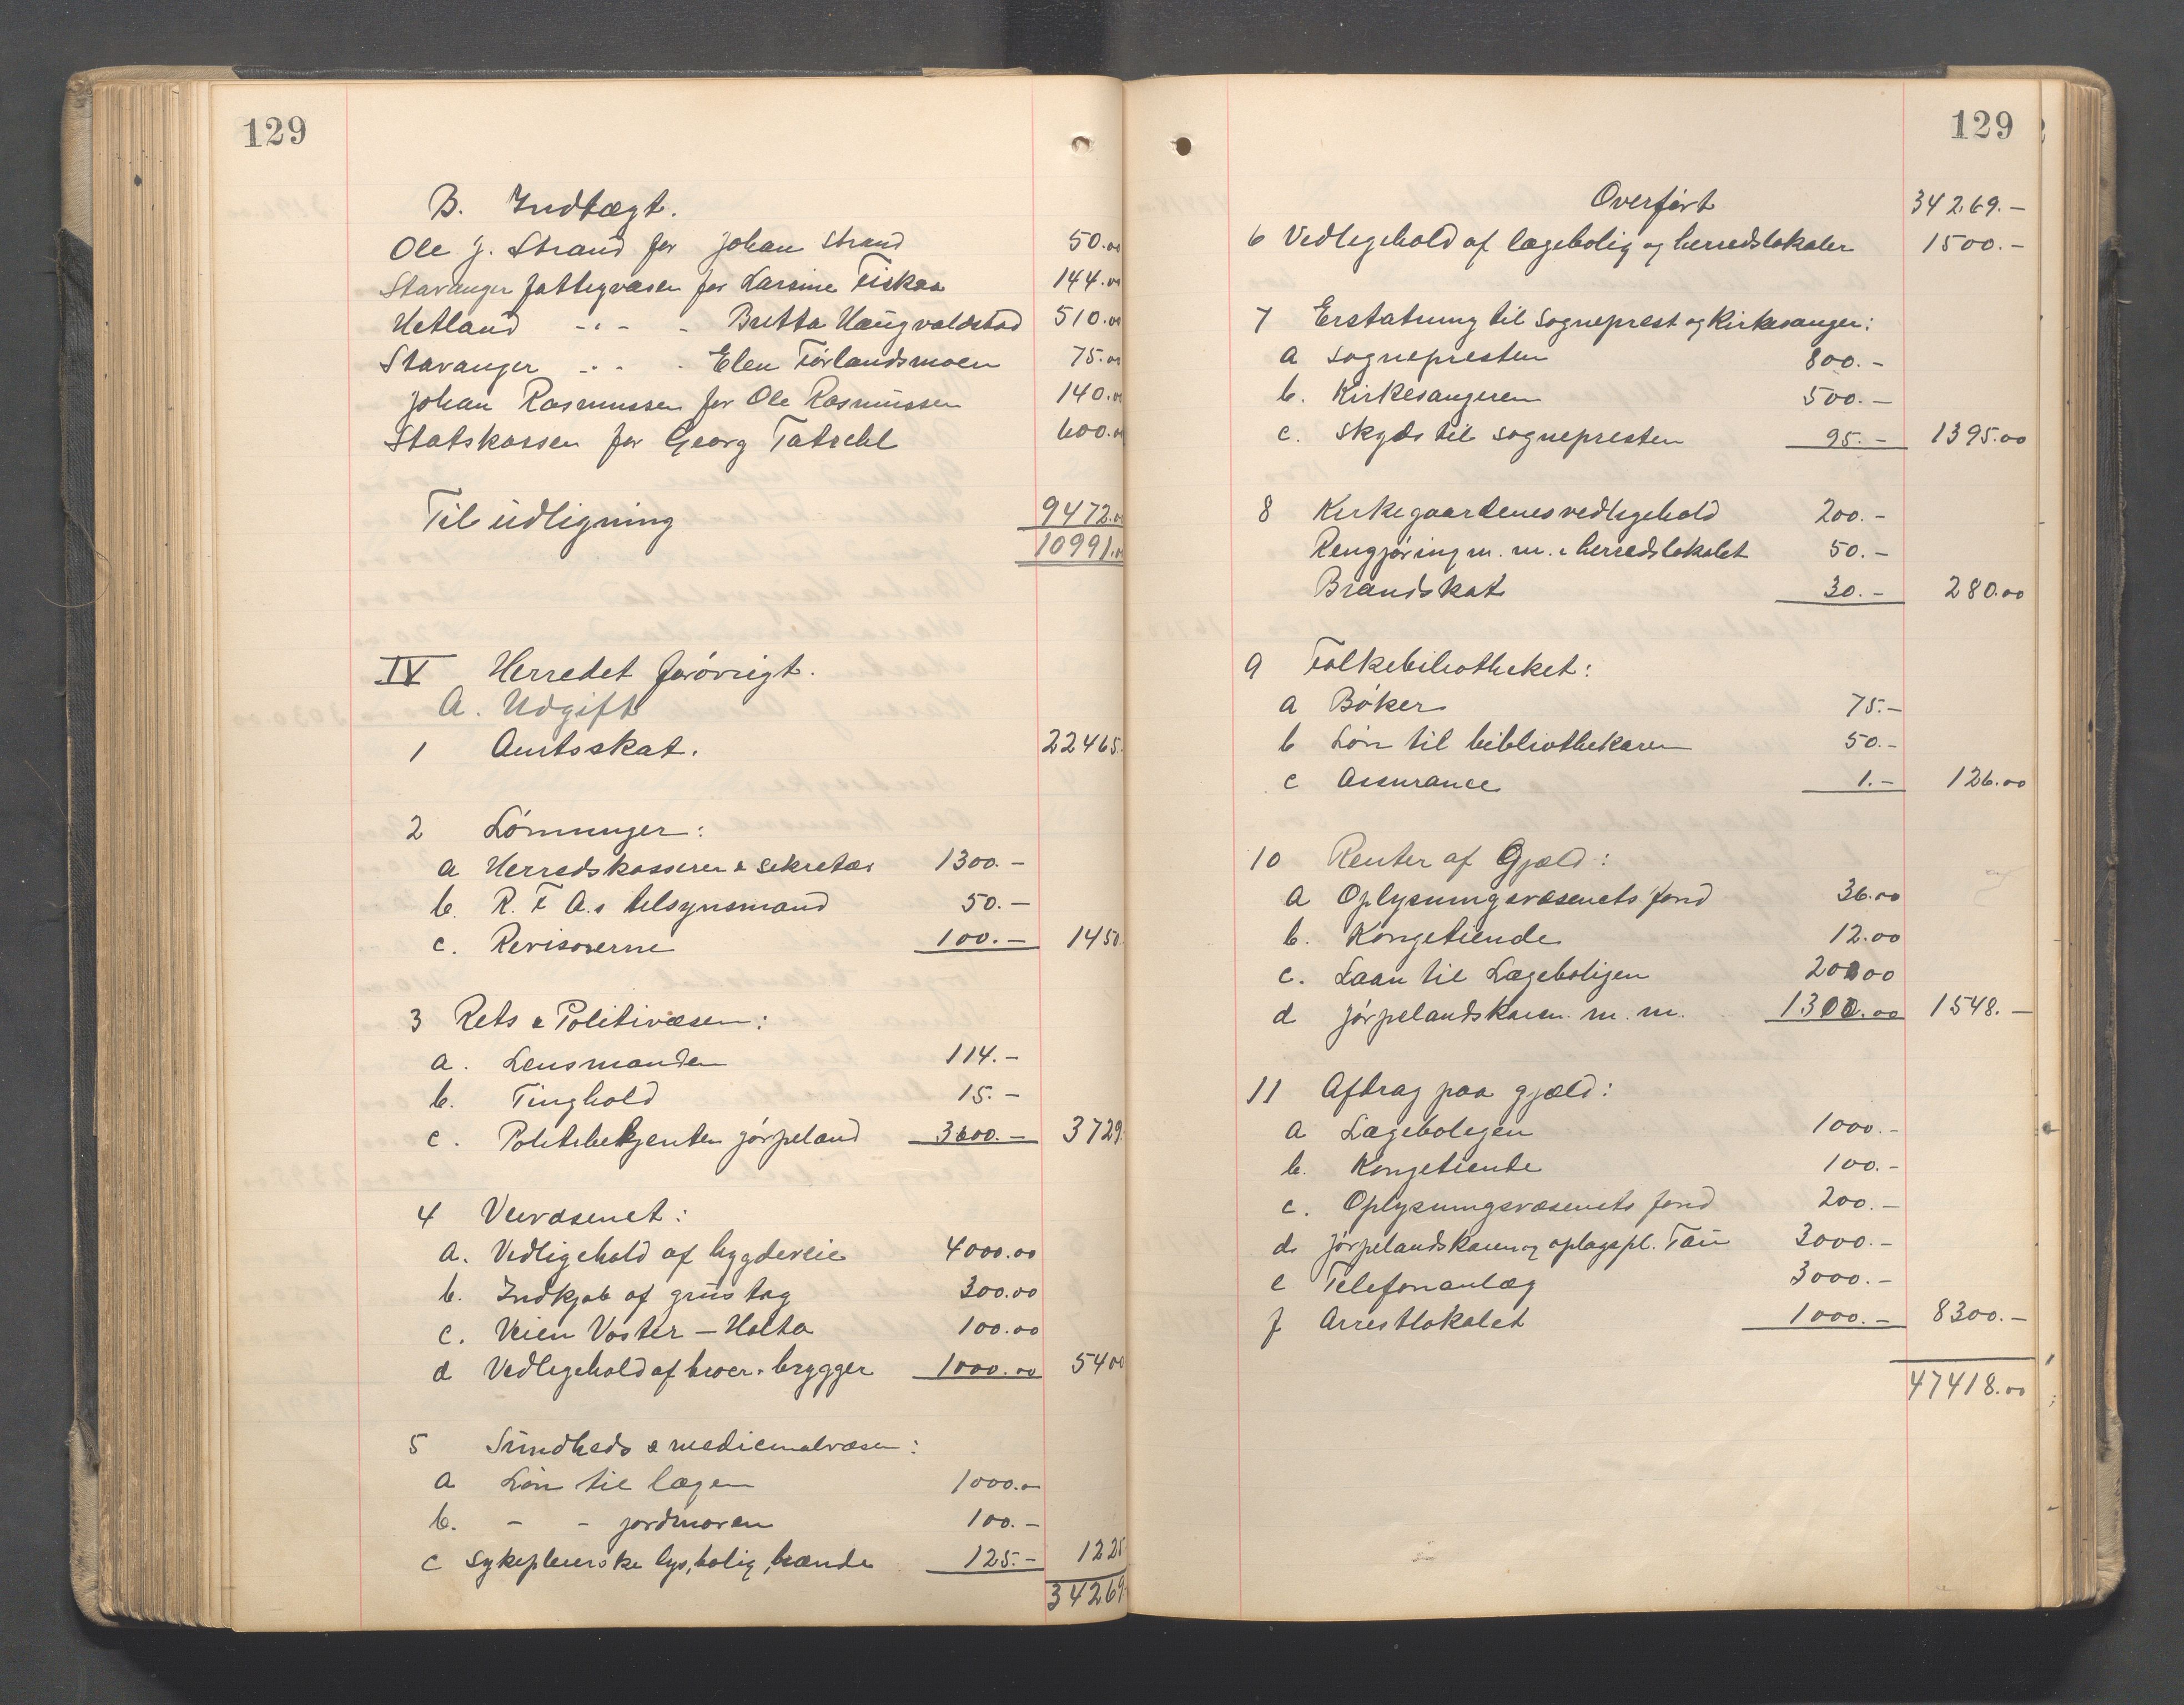 129
B. Indtægt.
Ole J. Strand for Johan Strand 50.00
Stavanger fattigvæsen for Larsine Fiskaa 144.00
Hetland -"- - Britta Haugvaldstad 510.00
Stavanger -"- - Elen Førlandsmoen 75.00
Johan Rasmussen for Ole Rasmussen 140.00
Statskassen for Georg Tatschl 600.00
Til udligning 9472.00
10991.00
IV Herredet forøvrigt.
A. Udgift
1 Amtsskat. 22465.
2 Lønninger:
a Herredskasserer & sekretær 1300.-
b. R. F. A.s tilsynsmand 50.-
c. Revisorerne 100.- 1450.
3 Rets & Politivæsen:
a. Lensmanden 114.-
b. Tinghold 15.-
c. Politibetjenten Jørpeland 3600.- 3729.
4 Veivæsenet:
a. Vedligehold af bygdeveie 4000.00
b. Indkjøb af grustag 300.00
c. Veien Voster - Holta 100.00
d Vedligehold af broer & brygger 1000.00 5400
5 Sundheds & medicinalvæsen:
a Løn til lægen 1000.00
b. - - jordmoren 100.-
c Sykepleierske lys, bolig, brænde 125.- 1225.
34269.
129
Overført 34269.-
6 Vedligehold af lægebolig og herredslokaler 1500.-
7 Erstatning til Sogneprest og Kirkesanger:
a Sognepresten 800.-
b. Kirkesangeren 500.-
c. Skyds til sognepresten 95.- 1395.00
8 Kirkegaardenes vedligehold 200.-
Rengjøring m. m. i herredslokalet 50.-
Brandskat 30.- 280.00
9 Folkebibliotheket:
a Bøker 75.-
b Løn til bibliothekaren 50.-
c Assurance 1.- 126.00
10 Renter af Gjæld:
a Oplysningsvæsenets fond 36.00
b. Kongetiende 12.00
c. Laan til Lægeboligen 200.00
d Jørpelandskaien m. m. 1300.00 1548.-
11 Afdrag paa gjæld:
a Lægeboligen 1000.-
b. Kongetiende 100.-
c. Oplysningsvæsenets fond 200.-
d. Jørpelandskaien og oplagspl. Tau 3000.-
e Telefonanlæg 3000.-
f Arrestlokalet 1000.- 8300.-
47418.00